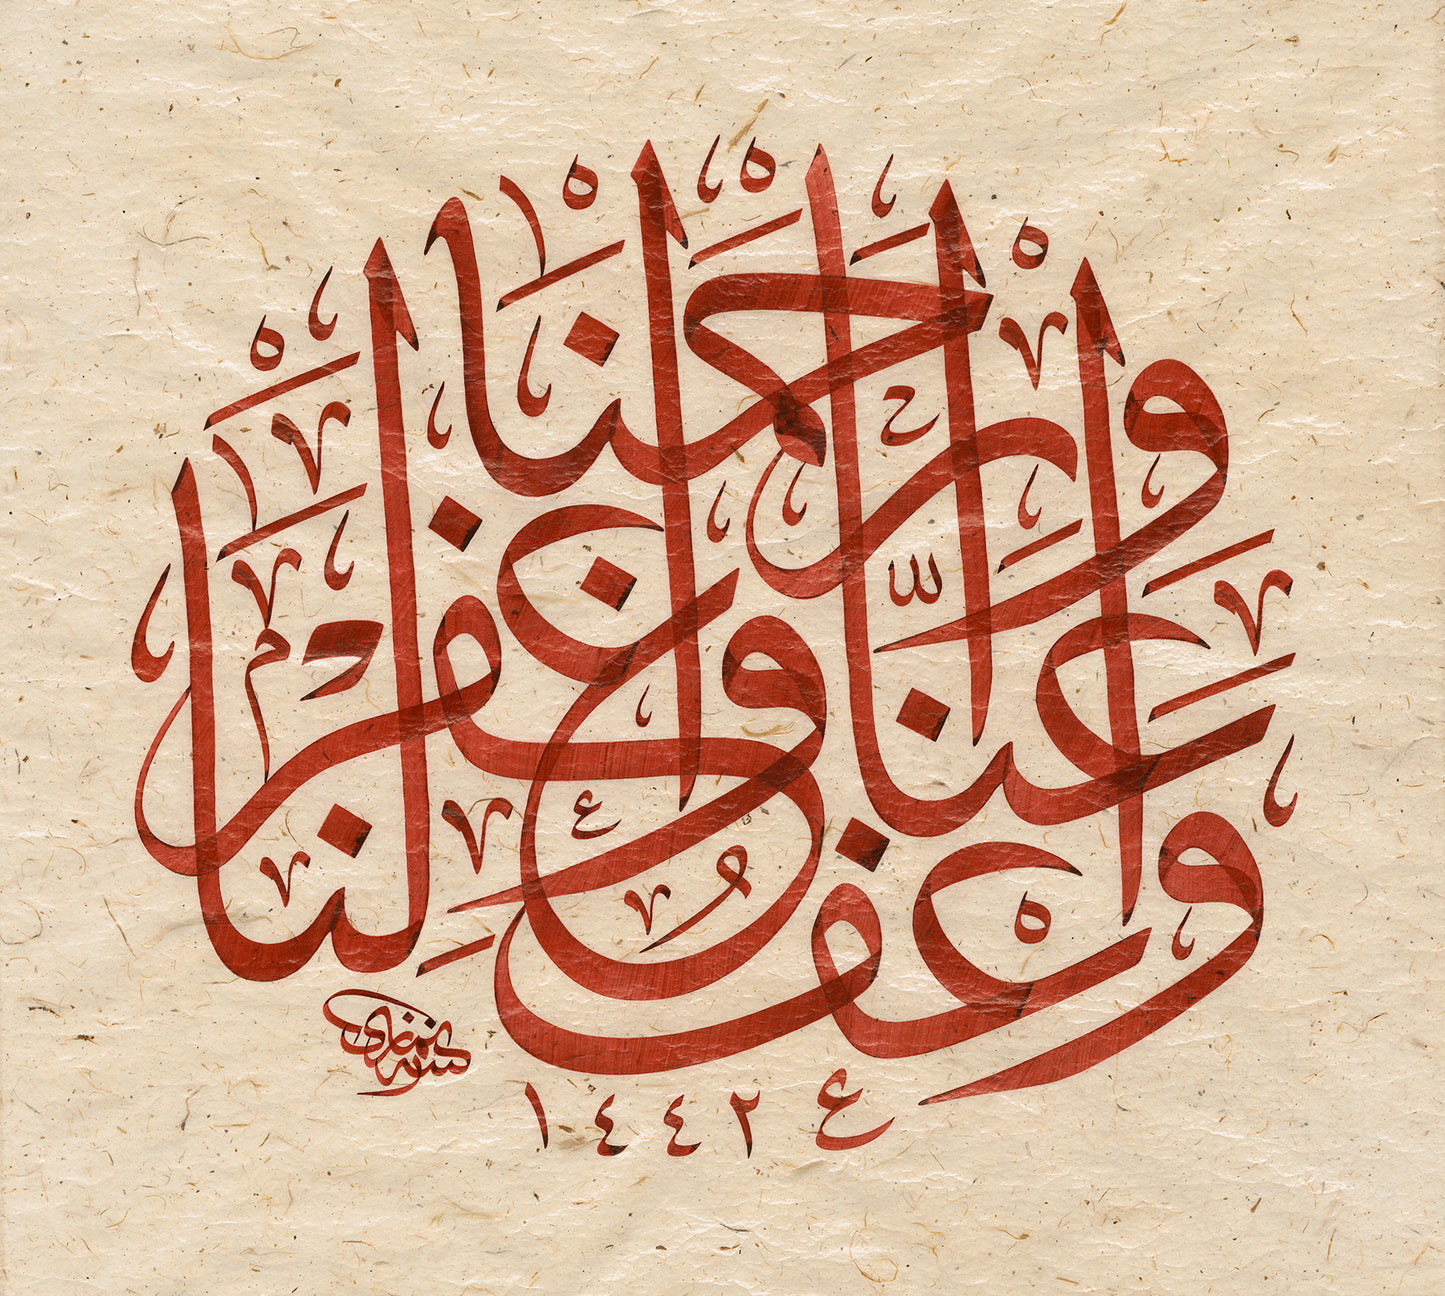 وَاعْفُ عَنَّا وَاغْفِرْ لَنَا وَارْحَمْنَا
١٤٤٢